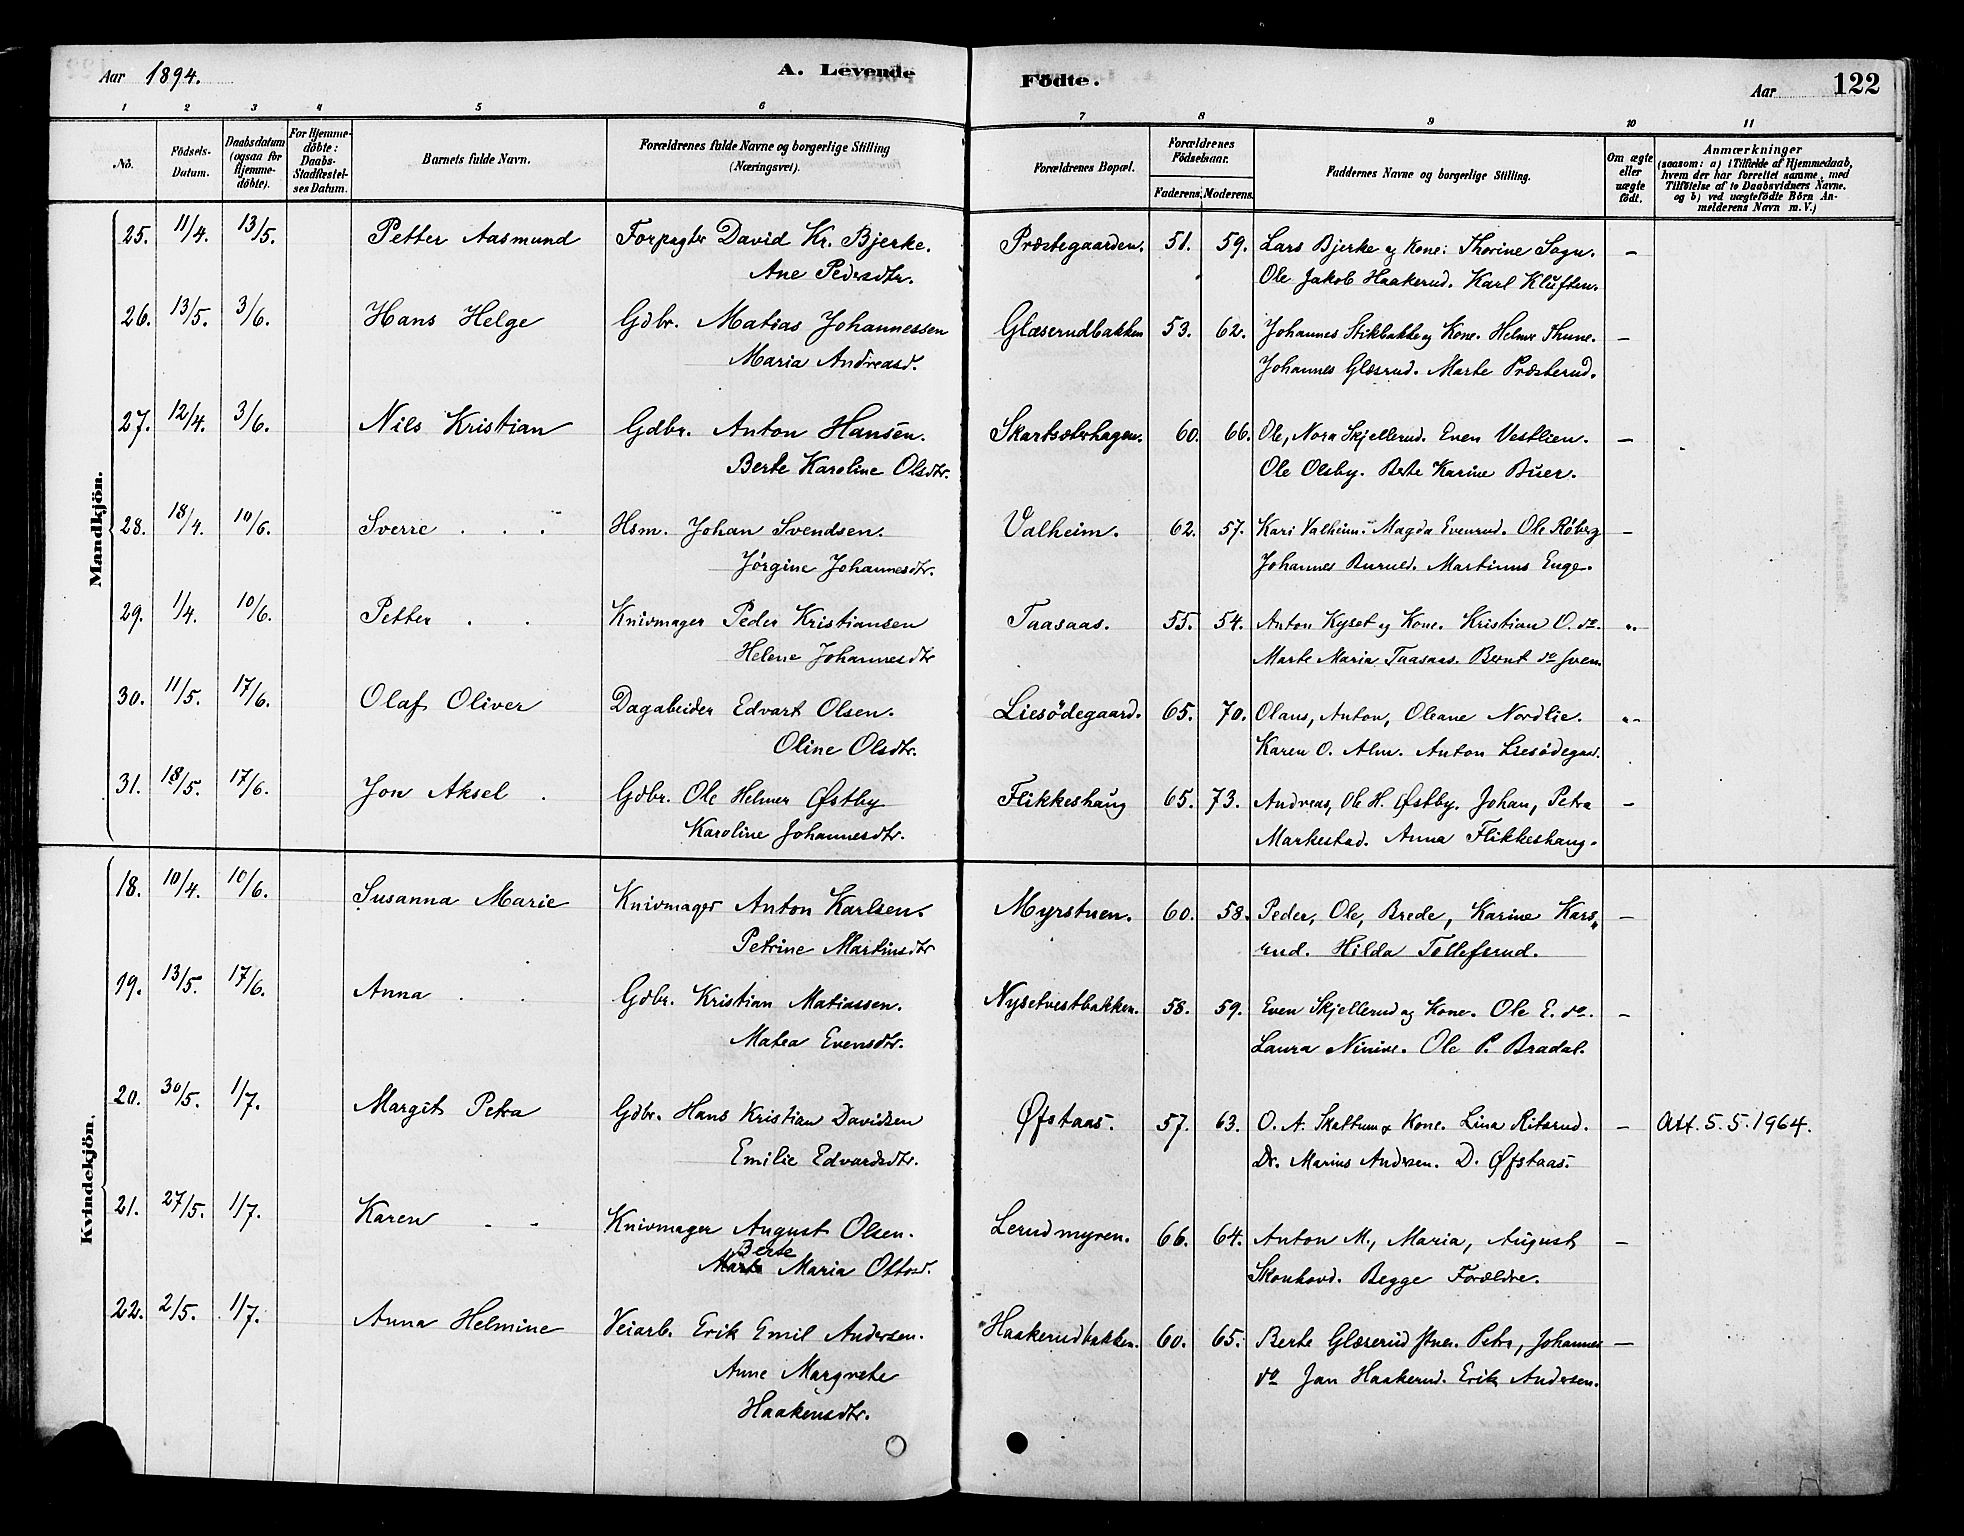 Aar 1894. A. Levende Födte. Aar 122
1 2 3 4 5 6 7 8 9 10 11
No. Födsels-Datum. Daabsdatum (ogsaa for Hjemme-döbte). For Hjemme-döbte: Daabs-Stadfæstel-ses Datum. Barnets fulde Navn. Forældrenes fulde Navne og borgerlige Stilling (Næringsvei). Forældrenes Bopæl. Forældrenes Födselsaar. Faderens. Moderens. Faddernes Navne og borgerlige Stilling. Om ægte eller uægte födt. Anmærkninger (saasom: a) i Tilfælde af Hjemmedaab, hvem der har forrettet samme, med Tilföielse af to Daabsvidners Navne. og b) ved uægtefödte Börn An-melderens Navn m. V.)
Mandkjön.
25. 11/4. 13/5. Petter Aasmund Forpagter David Kr. Bjerke. Præstegaarden. 51. 59. Lars Bjerke og Kone. Thorine Sogn. –
Ane Pedersdtr. Ole Jakob Haakerud. Karl Kluften.
26. 13/5. 3/6. Hans Helge Gdbr. Matias Johannessen Glæserudbakken 53. 62. Johannes Stikbakke og Kone. Helmer Thune. –
Maria Andreasd. Johannes Glæsrud. Marte Præsterud.
27. 12/4. 3/6. Nils Kristian Gdbr. Anton Hansen. Skartsæterhagen. 60. 66. Ole, Nora Skjellerud. Even Vestlien. –
Berte Karoline Olsdtr. Ole Olsby. Berte Karine Buer.
28. 18/4. 10/6. Sverre . . . Hsm. Johan Svendsen. Valheim. 62. 57. Kari Valheim. Magda Evenrud. Ole Røberg –
Jørgine Johannesdtr. Johannes Burud. Martinus Enge.
29. 1/4. 10/6. Petter . . Knivmager Peder Kristiansen Taasaas. 55. 54. Anton Kyset og Kone. Kristian O. do. "
Helene Johannesdtr Marte Maria Taasaas. Bernt do
30. 11/5. 17/6. Olaf Oliver Dagabeider Edvart Olsen. Liesödegaard. 65. 70. Olaus, Anton, Oleane Nordlie. "
Oline Olsdtr. Karen O. Alm. Anton Liesødegaard.
31. 18/5. 17/6. Jon Aksel . Gdbr. Ole Helmer Østby Flikkeshaug 65. 73. Andreas, Ole H. Østby. Johan, Petra –
Karoline Johannesdtr. Markestad. Anna Flikkeshaug.
Kvindekjön.
18. 10/4. 10/6. Susanna Marie Knivmager Anton Karlsen. Myrstuen. 60. 58. Peder, Ole, Brede, Karine Kars- –
Petrine Martinsdtr rud. Hilda Tollefsrud.
19. 13/5. 17/6. Anna . . Gdbr. Kristian Matiassen. Nysetvestbakken. 58. 59. Even Skjellerud og Kone. Ole E. do. –
Matea Evensdtr. Laura Ninive. Ole P. Bradal.
20. 30/5. 1/7. Margit Petra Gdbr. Hans Kristian Davidsen Øfstaas. 57. 63. O. A. Skattum & Kone. Lina Ritsrud. – Att. 5.5.1964.
Emilie Edvardsdtr. Dr. Marius Andersen. D. Øfstaas.
21. 27/5. 1/7. Karen - - Knivmager August Olsen. Lerudmyren. 66. 64. Anton M., Maria, August –
Berte
Marte Maria Ottosd. Skonhovd. Begge Forældre.
22. 2/5. 1/7. Anna Helmine Veiarb. Erik Emil Andersen. Haakerudbakken. 60. 65. Berte Glæserudstuen. Petra, Johannes –
Anne Margrete do Jan Haakerud. Erik Andersen.
Haakensdtr.